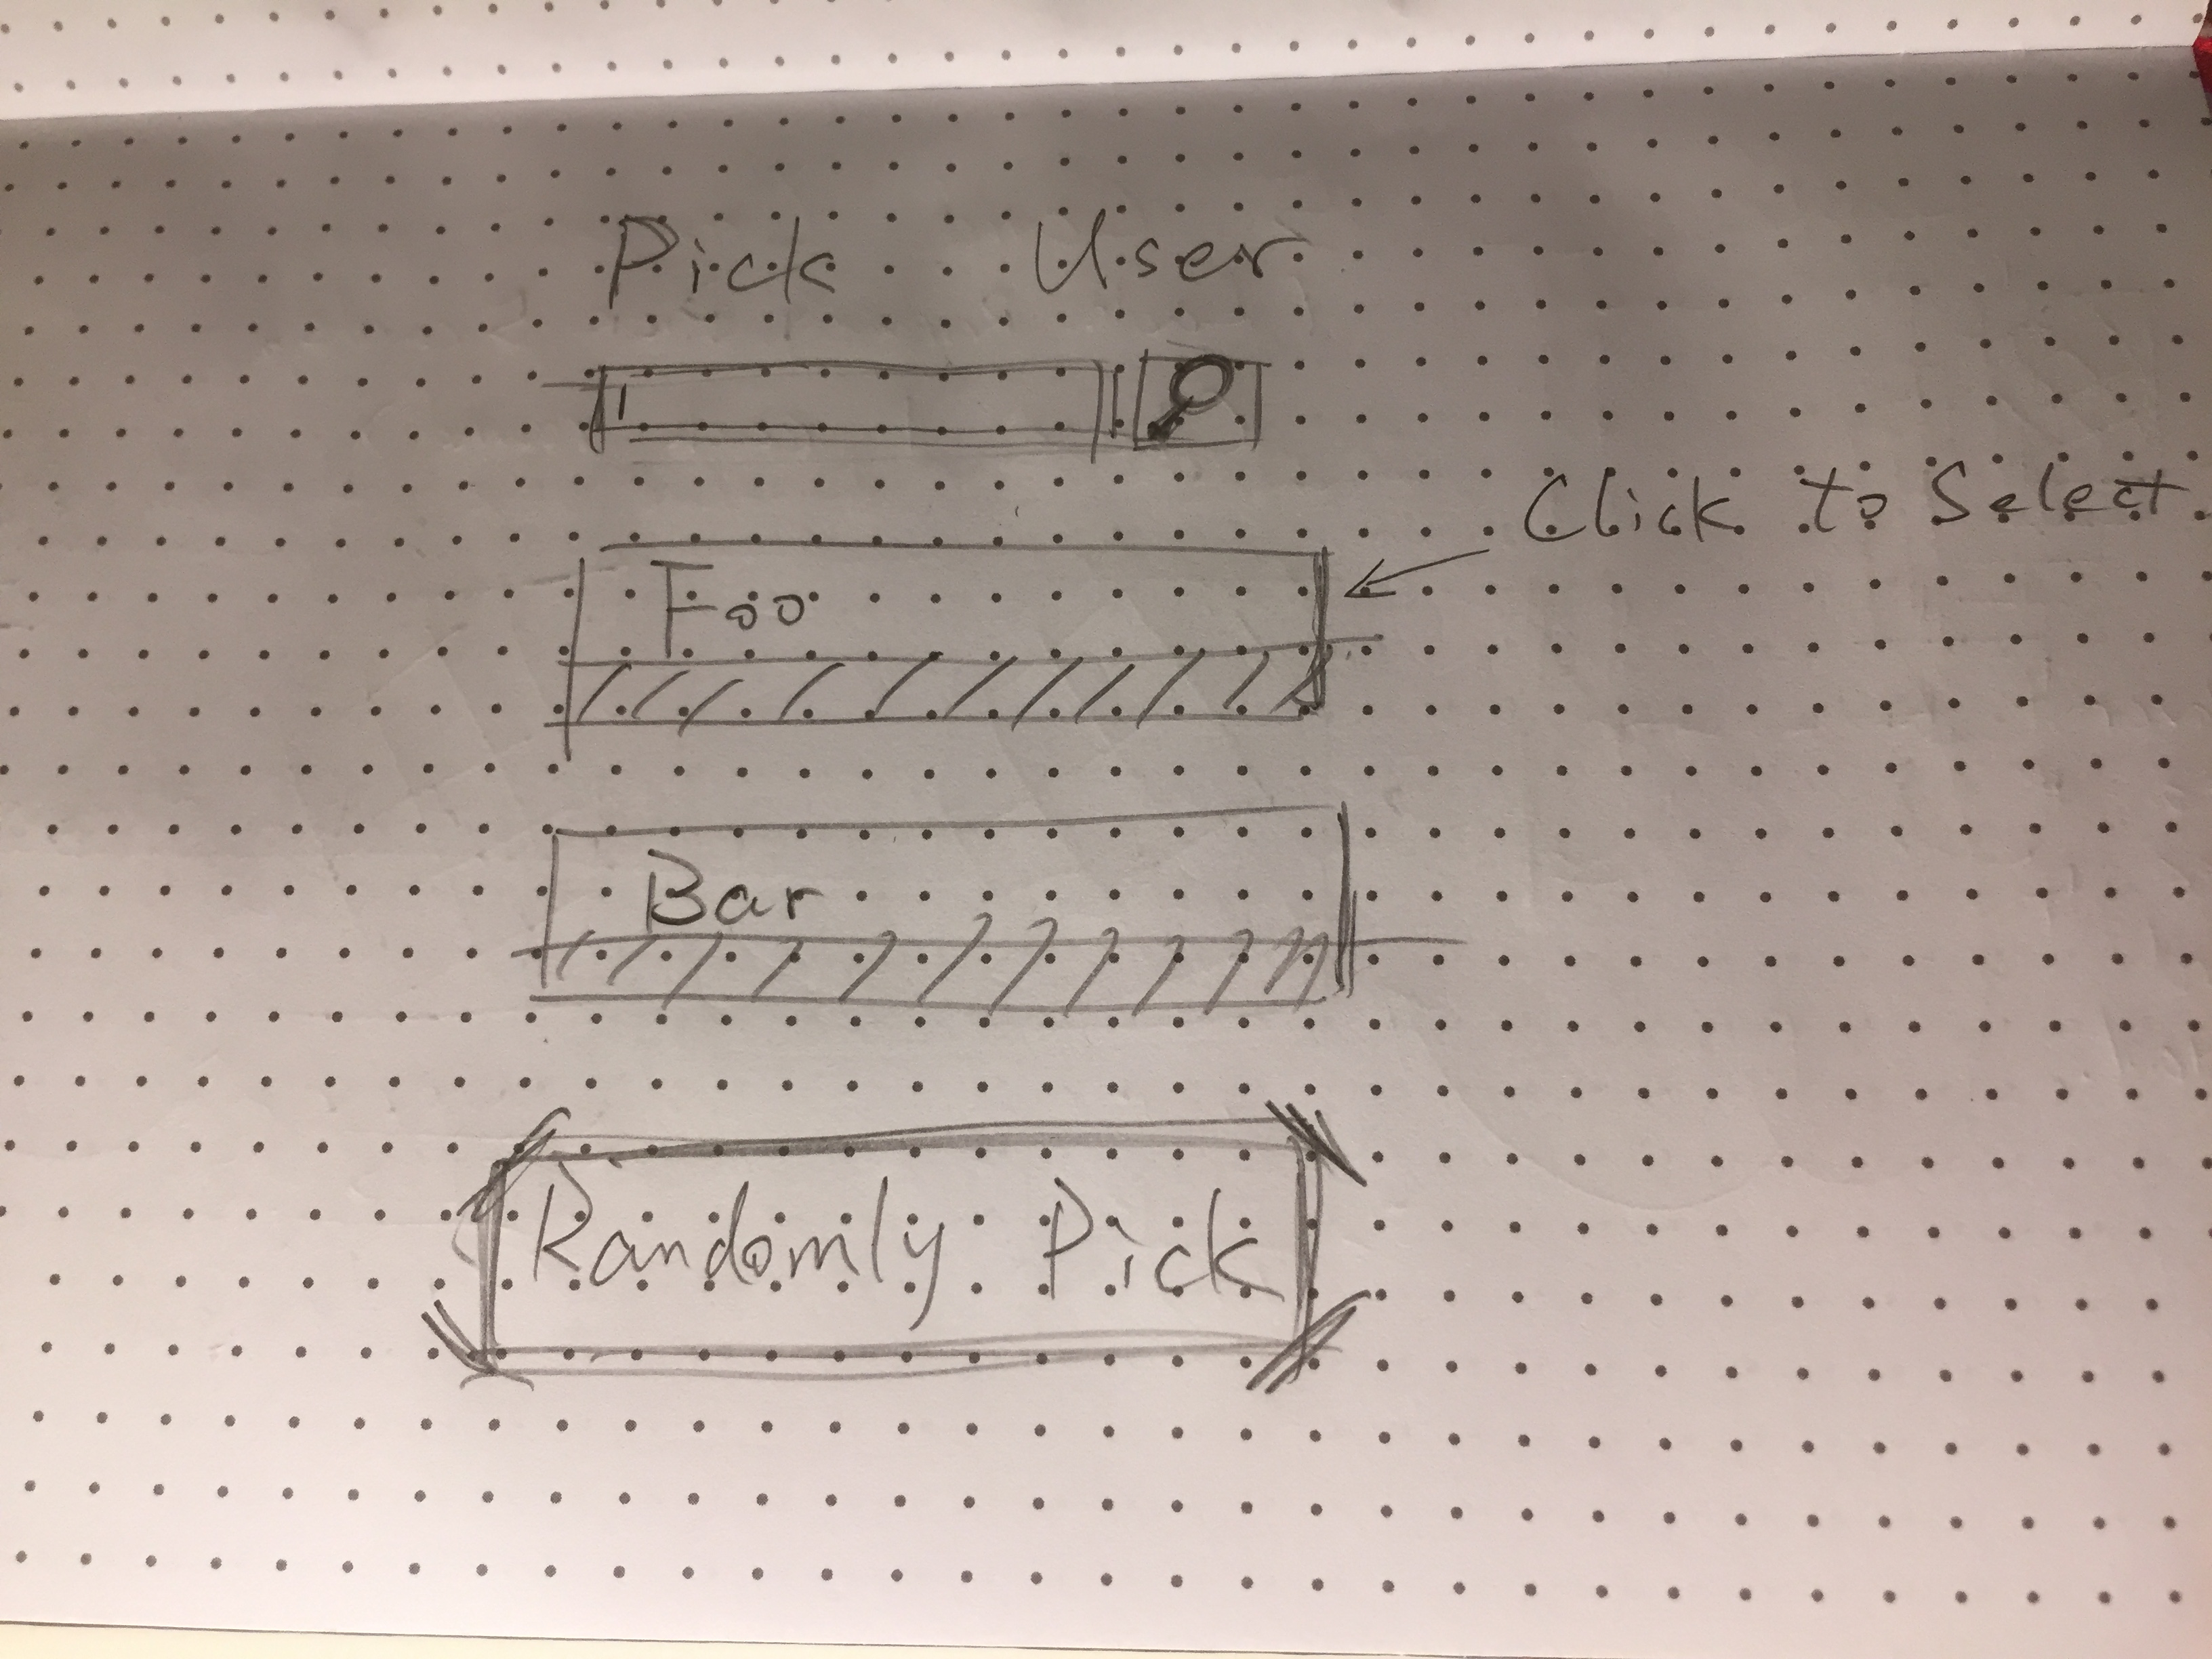 Pick User
Click to Select
Foo
Bar
Randomly Pick